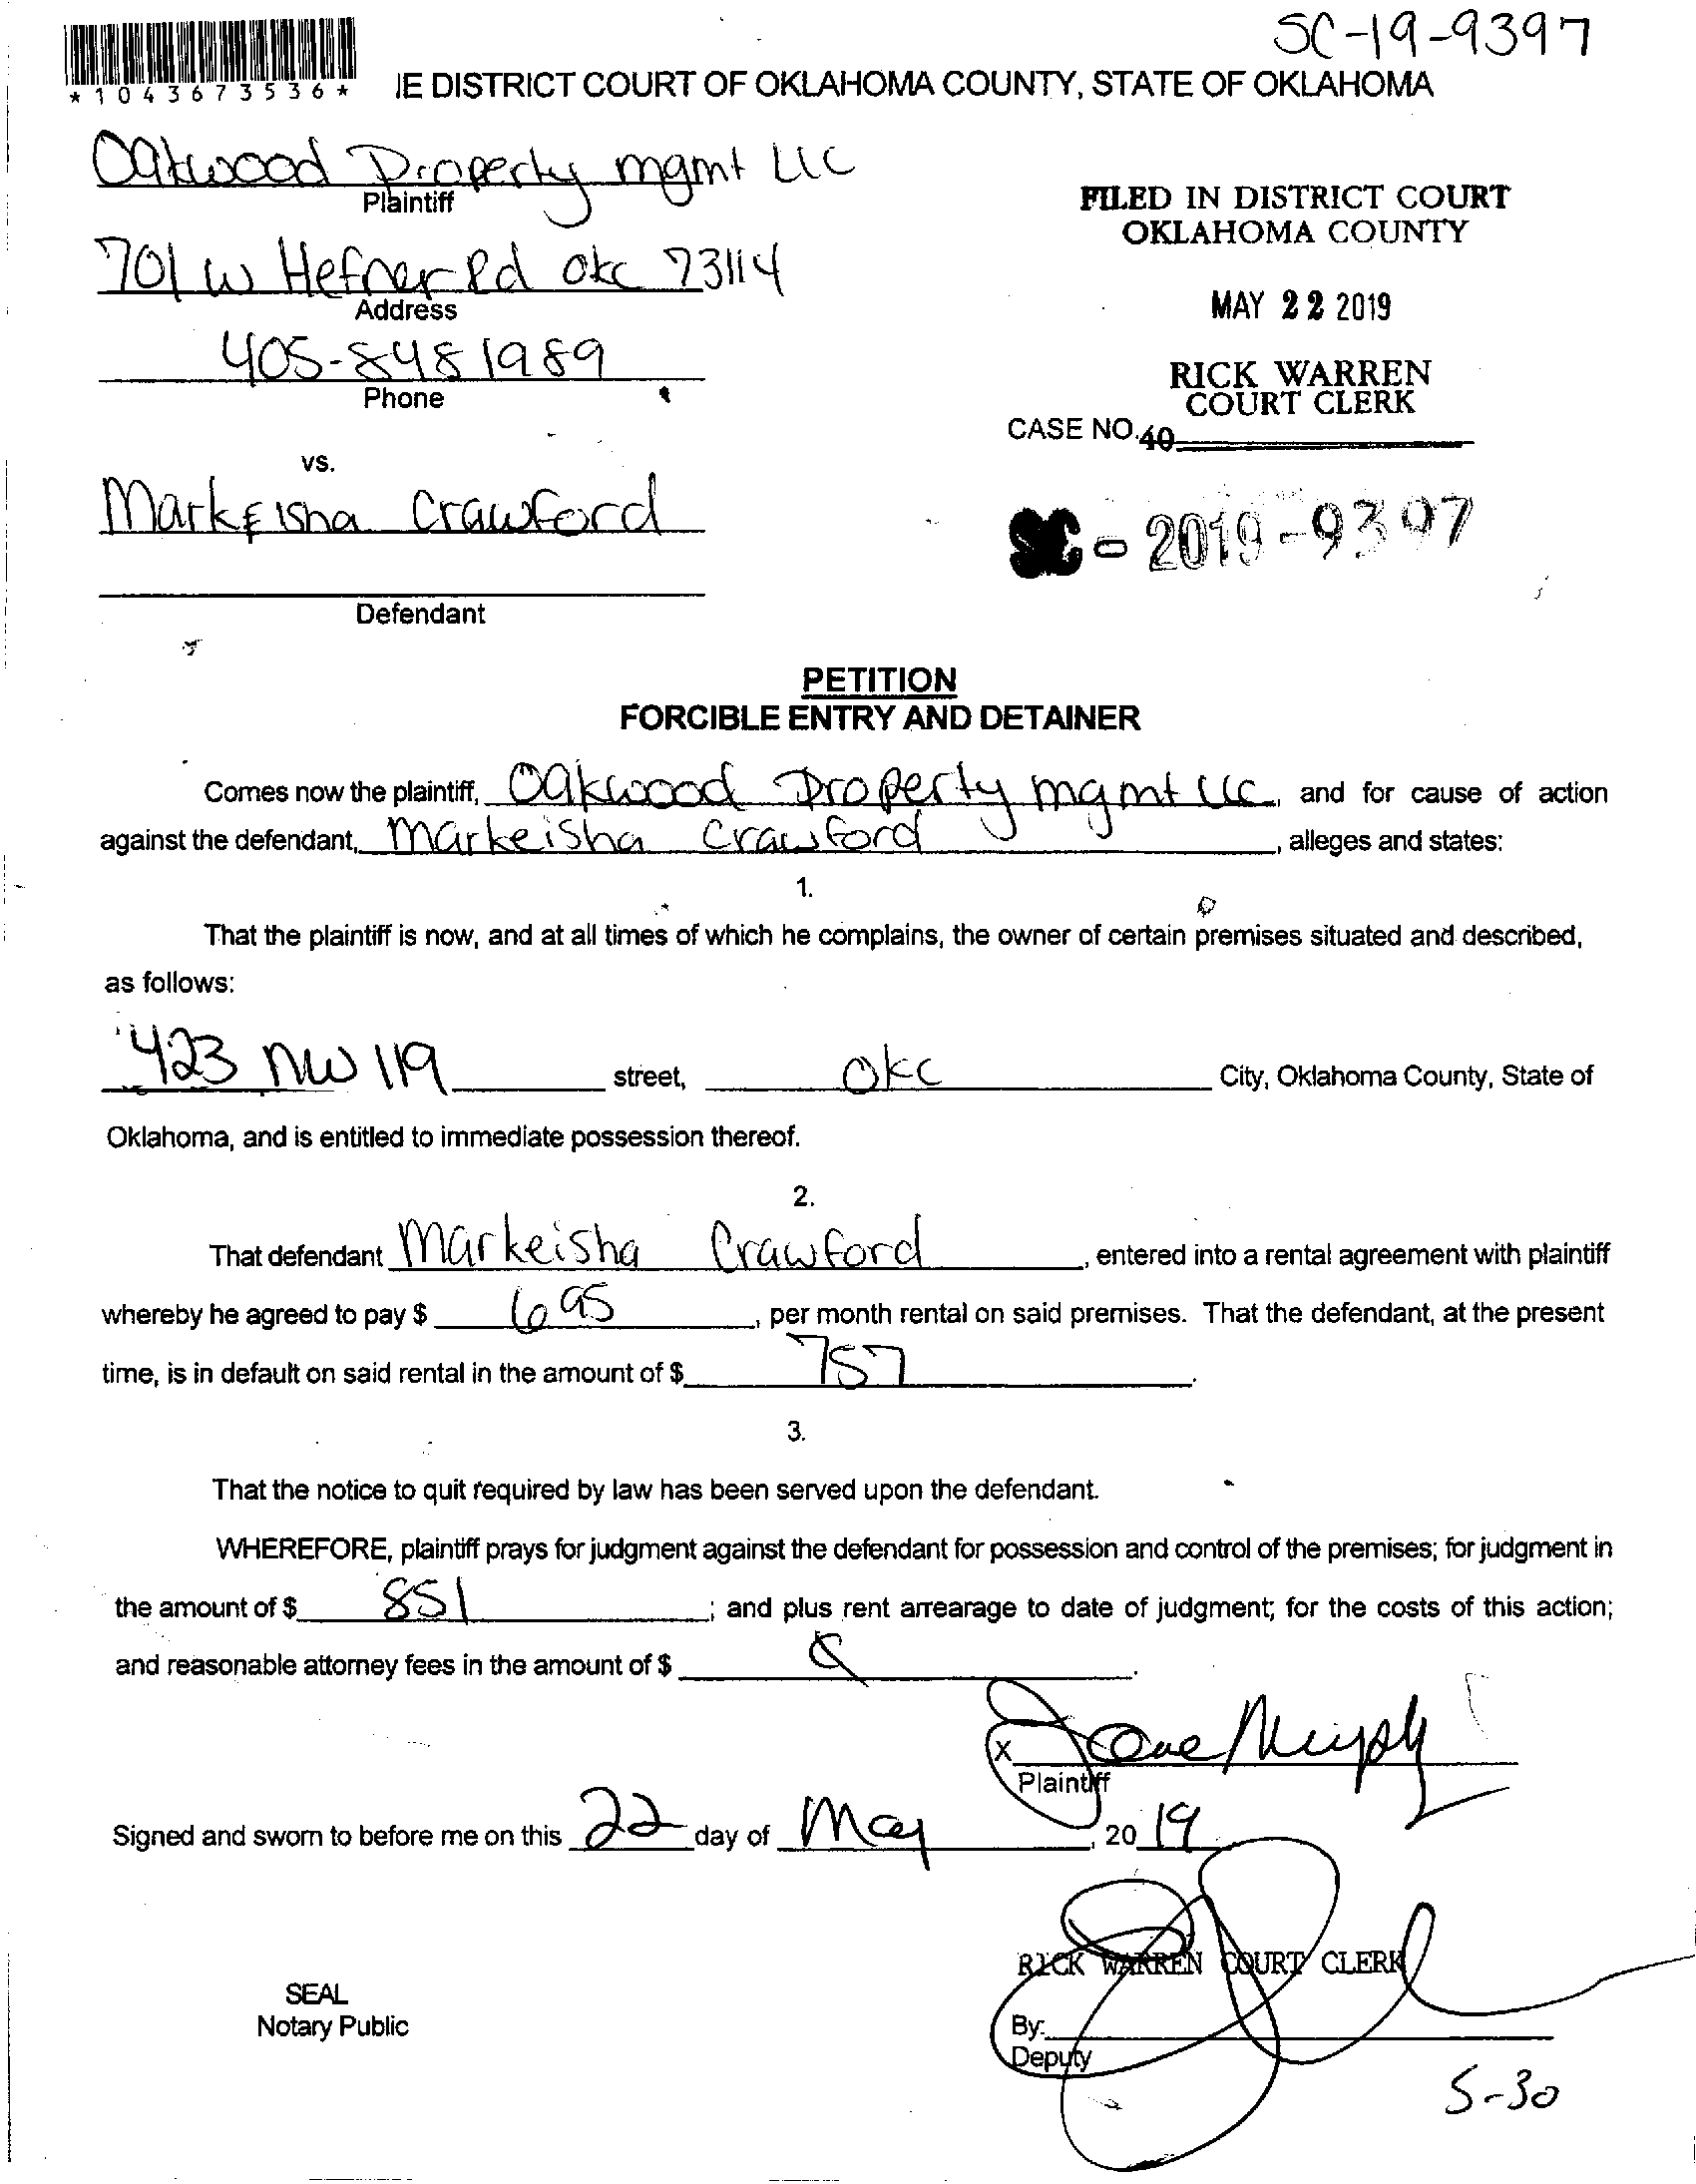 SC-19-9397
*1043673536*
IE DISTRICT COURT OF OKLAHOMA COUNTY, STATE OF OKLAHOMA
Oakwood Property mgmt LLC
Plaintiff
FILED IN DISTRICT COURT
OKLAHOMA COUNTY
701 W Hefner Rd OKC 73114
Address
MAY 22 2019
405-848 1989
Phone
RICK WARREN
COURT CLERK
CASE NO. 40
vs.
MarkEisha Crawford
SC-2019-9397
Defendant
PETITION
FORCIBLE ENTRY AND DETAINER
Comes now the plaintiff, Oakwood Property mgmt LLC, and for cause of action
against the defendant, Markeisha Crawford, alleges and states:
1.
That the plaintiff is now, and at all times of which he complains, the owner of certain premises situated and described,
as follows:
423 NW 119 street, OKC City, Oklahoma County, State of
Oklahoma, and is entitled to immediate possession thereof.
2.
That defendant Markeisha Crawford, entered into a rental agreement with plaintiff
whereby he agreed to pay $ 695, per month rental on said premises. That the defendant, at the present
time, is in default on said rental in the amount of $ 757.
3.
That the notice to quit required by law has been served upon the defendant.
WHEREFORE, plaintiff prays for judgment against the defendant for possession and control of the premises; for judgment in
the amount of $ 851; and plus rent arrearage to date of judgment; for the costs of this action;
and reasonable attorney fees in the amount of $
X Murphy
Plaintiff
Signed and sworn to before me on this 22 day of May, 20 19
RICK WARREN COURT CLERK
SEAL
Notary Public
By:
Deputy
5-30